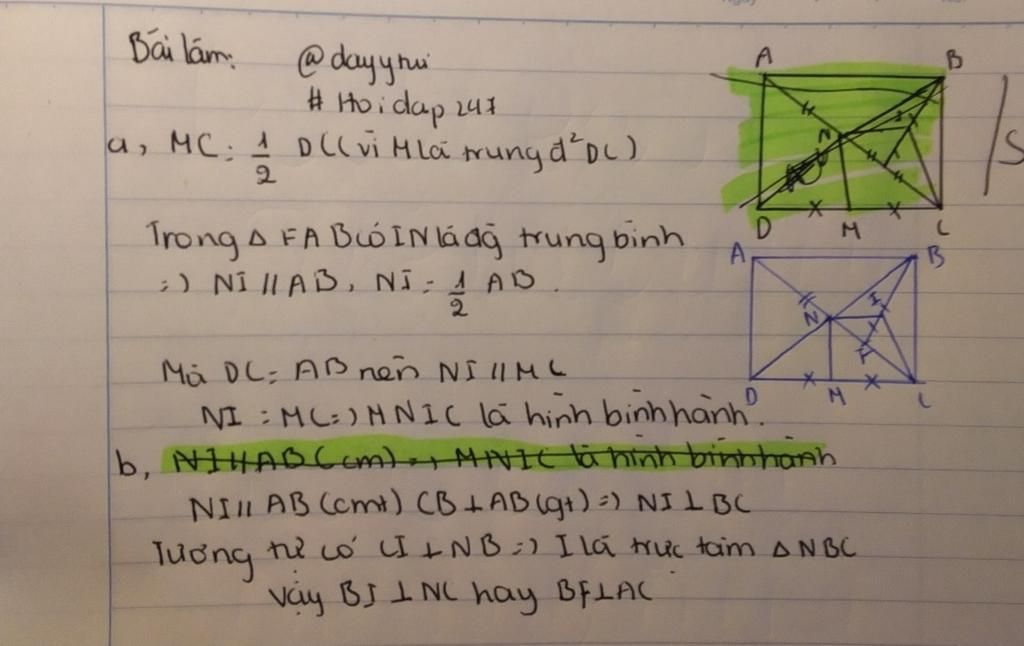 Bài làm: @dayyrui
# Hoidap247
a, MC = 1/2 DC (vì M là trung đ² DC)
Trong Δ FAB có IN là đg̃ trung bình
=> NI // AB, NI = 1/2 AB.
Mà DC = AB nên NI // MC
NI = MC => MNIC là hình bình hành.
b, NI // AB (cm) => MNIC là hình bình hành
NI // AB (cmt) CB ⊥ AB (gt) => NI ⊥ BC
Tương tự có CI ⊥ NB => I là trực tâm Δ NBC
Vậy BI ⊥ NC hay BF ⊥ AC
A B
N
D M C
A B
N I
F
D M C